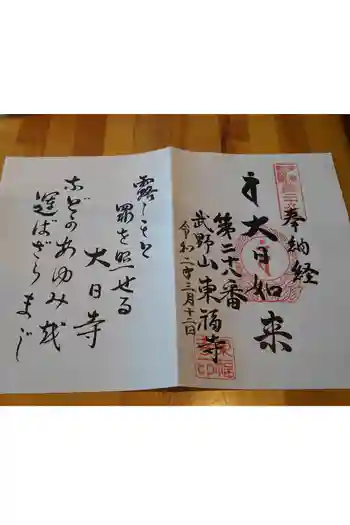 奉納経
大日如来
第二十八番
武野山東福寺
令和二年三月十二日
露しもと
罪を照せる
大日寺
などかあゆみを
運ばざらまじ